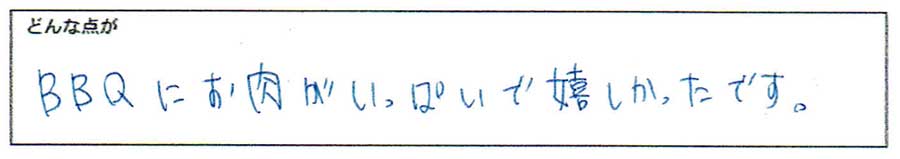 どんな点が
BBQにお肉がいっぱいで嬉しかったです。